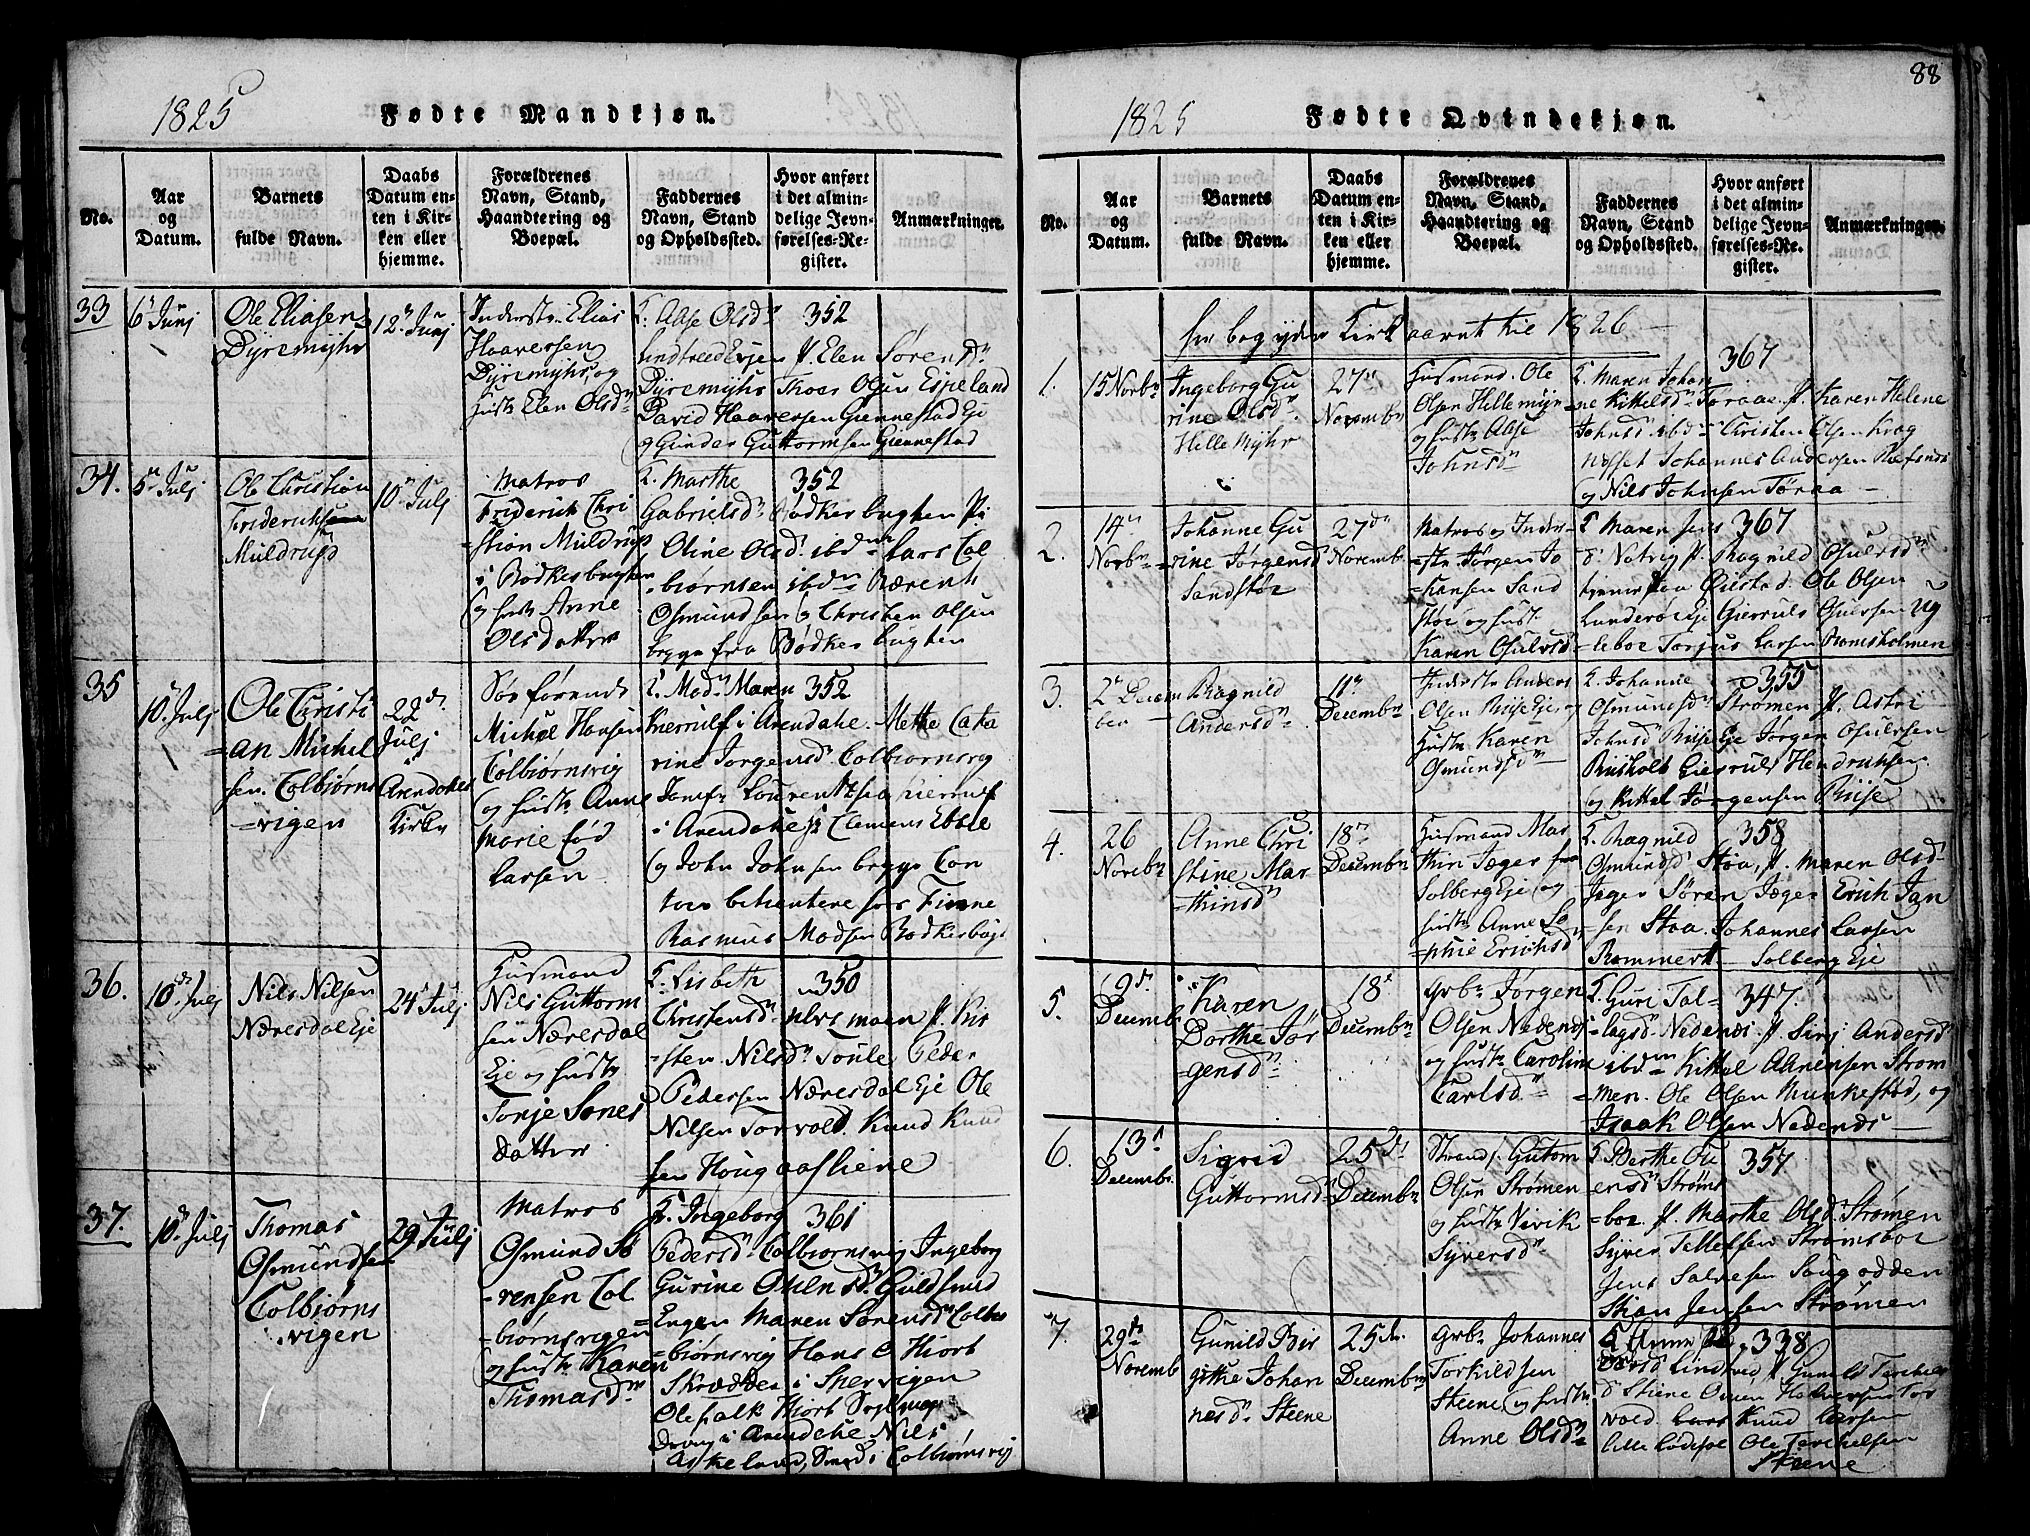 1825 Fødte Mandkjøn.
No.
Aar og Datum.
Barnets fulde Navn.
Daabs Datum enten i Kirken eller hjemme.
Forældrenes Navn, Stand, Haandtering og Boepæl.
Faddernes Navn, Stand og Opholdssted.
Hvor anført i det almindelige Jevnførelses-Register.
Anmærkninger.
33
6 Junj
Ole Eliasen
Dyremyhr
12 Junj
Inderstr Elias
Haaversen
Dyremyhr, og
hustr Elen Olsdr
F. Aase Olsdr 352
Lindtveed Eje P. Elen Sørensdr
Dyremyhr Thoer Olsen Espeland
David Haaversen Giennestad Eje
og Gunder Guttormsen Giennestad
34.
5 Julj
Ole Christian
Friderichsen
Muldrup
10 Julj
Matros
Friderich Chri
=stian Muldrup
i Bødkerbugten
og hustr Anne
Olsdatter
F. Marthe 352
Gabrielsdr Bødkerbugten Pi
Oline Olsd ibdm Lars Col
=biørnsen ibdm Bærent
Osmundsen og Christen Olsen
brygge fra Bødkerbugten
35
10 Julj
Ole Christi
=an Michel
sen. Colbjørns
=vigen
22d
Julj
Arendahls
Kirke
Søe førende
Michel Hansen
Colbiørnsvig
og hustr Anne
Marie fød
Larsen
F. Modr Maren 352
Kierrulf i Arendahl. Mette Cata
rine Jørgensd Colbiørnsvg
Jomfr Lourentsea Kierrulf
i Arendahl Clemens Ebbel
og John Johnsen brygge Con
toir betientere hos Finne
Rasmus Madsen Bødkerbugt
36.
10d Julj
Nils Nilsen
Næresdal Eje
24 Julj
Husmand
Nils Guttorm
sen Næresdal
Eje og hustr
Tonje Tønes
datter
F. Lisbeth 350
Christensdr P. Kir
=sten Nilsdr Soule Peder
Pedersen Næresdal Eje Ole
Nilsen Torvold. Knud Knud
sen Houg
37.
10 Julj
Thomas
Osmundsen
Colbiørns
vigen
29 Julj
Matros
Osmund Sø
=rensen Col
=biørnsvigen
og hustr Karen
Thomasdr
F. Ingeborg 361
Pedersdr Colbiørnsvig Ingeborg
Gurine
Engen Maren Sørensdr Colb
=biørnsvig Hans C Hiort
Skrædder i
Ole falk Hiort
i Arendahl Nils
Askeland, Smed i Colbiørnsvig
88
1825 Fødte Qvindekjøn.
No.
Aar og Datum.
Barnets fulde Navn.
Daabs Datum enten i Kirken eller hjemme.
Forældrenes Navn, Stand, Haandtering og Boepæl.
Faddernes Navn, Stand og Opholdssted.
Hvor anført i det almindelige Jevnførelses-Register.
Anmærkninger.
her begynder Kirkeaaret til 1826
1.
15 Novbr
Ingeborg Gu
rine Olsdr
Helle Myhr
27d
Novembr
Husmand Ole
Olsen Hellemyr
og hustr Aase
Johnsdr
F. Maren Johan 367
ne Kittelsdr Toraae P. Karen Helene
Johnsd ibd Christen Olsen Krag
Johannes Andersen Refsnes
og Nils Johnsen Tøraa
2.
14
Novbr
Johanne Gu
=rine Jørgensd
Sandstøe
27d
Novembr
Matros og Inder
=str Jørgen Jo
=hansen Sand
støe og hustr
Karen Osulvsd
F. Maren Jens 367
d Natvig P. Ragnild Osulvsdr
Ole Olsen
Lunderøe Eje Gierruls Osulvsen Ug
leboe Torjus Larsen Romsholmen
3.
2 Decem
ber
Ragnild
Andersdr
11
Decembr
Inderstr Anders
Olsen Riise Eje, og
hustr Karen
Osmundsdr
F. Johanne 355
Osmundsdr Strømen P. Astri
Johnsd Riise Eje Jørgen Osulvsen
Riisholt Gierruls Hendrichsen
og Kittel Jørgensen Riise
4.
26
Novebr
Anne Chri
stine Mar
=thinsdr
18
Decembr
Husmand Mar
thin Jæger fra
Solberg Eje og
hustr Anne So
phie Erichsd
F. Ragnild 358
Osmundsd Støa, P. Maren Olsd
Jæger Søren Jæger Erich Jan
sen Støa. Johannes Larsen
Rommert Solberg Eje
5.
9
Decemb
Karen
Dorthe Jør
gensdr
18
Decembr
Grbr Jørgen
Olsen Nedenæs
og hustr Caroline
Carlsdr
F. Guri Tal= 347.
=lagsd. Nedenæs P. Sirj Andersd
ibdm Kittel Aanensen Strøm
=men. Ole Olsen Munkestad, og
Isaak Olsen Nedenæs
6.
13
Decembr
Sigrid
Guttormsdr
25d
Decembr
Strands. Gutom
Olsen Strømen
og hustr Vivik
Syversdr
F. Berthe Ou 357
ensdr Strøms
=boe P. Marthe Olsd Strømen
Syver Tellefsen Strømsboe
Jens Salvesen Songodden
Stian Jensen Strømen
7.
29d
Novemb
Gunild Bir
githe Johan
nesdr Steene
25d
Decembr
Grbr Johannes
Torkildsen
Steene, og hustr
Anne Olsdr
F. Anne 338
Lindtved, P. Gunild Terchels
d Stiene Omen Halversen Tor
vold. Lars Knud Larsen
Ole Terchelsen
Steene